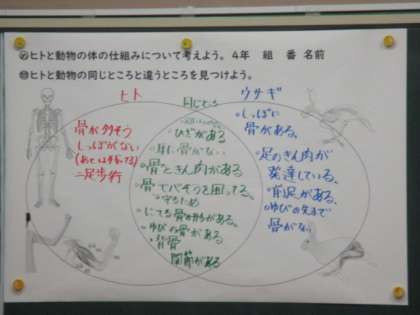 ヒトと動物の体の仕組みについて考えよう。4年 組 番 名前
ヒトと動物の同じところと違うところを見つけよう。
ヒト
同じところ
ウサギ
骨が多そう
しっぽがない
二足歩行
ひざがある
耳に骨がない
骨ときん肉がある
骨で
を囲ってる。
守るため
にてる骨の形がある。
ゆびの骨がある。
背骨
関節がある
しっぽに
骨がある。
足のきん肉が
発達している。
前足がある。
ゆびの先まで
骨がない